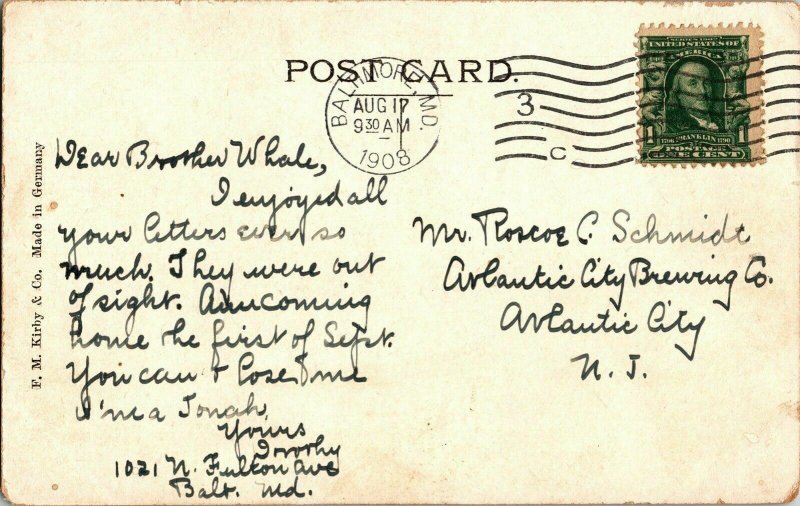 POST CARD.
BALTIMORE, MD.
AUG 17
9 30 AM
1908
3
C
SERIES 1902
UNITED STATES OF
AMERICA
1
1706 FRANKLIN 1790
1
POSTAGE
ONE CENT
F. M. Kirby & Co. Made in Germany
Dear Brother Whale,
I enjoyed all
your letters ever so
much. They were out
of sight. Am coming
home the first of Sept.
You can't lose me
I'm a Jonah.
Yours
Dorothy
1021 N. Fulton Ave
Balt. Md.
Mr. Roscoe C. Schmidt
Atlantic City Brewing Co.
Atlantic City
N. J.